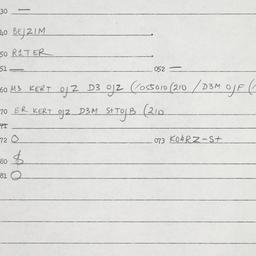 30 —
40 BEJZIM
50 RITER
51 — 052 =
60 M3 KERT OJZ D3 OJZ (/055010(210 / D3M OJF (
70 ER KERT OJZ D3M STTOJB (210
71
72 O 073 KOARZ-St
80 $
81 O